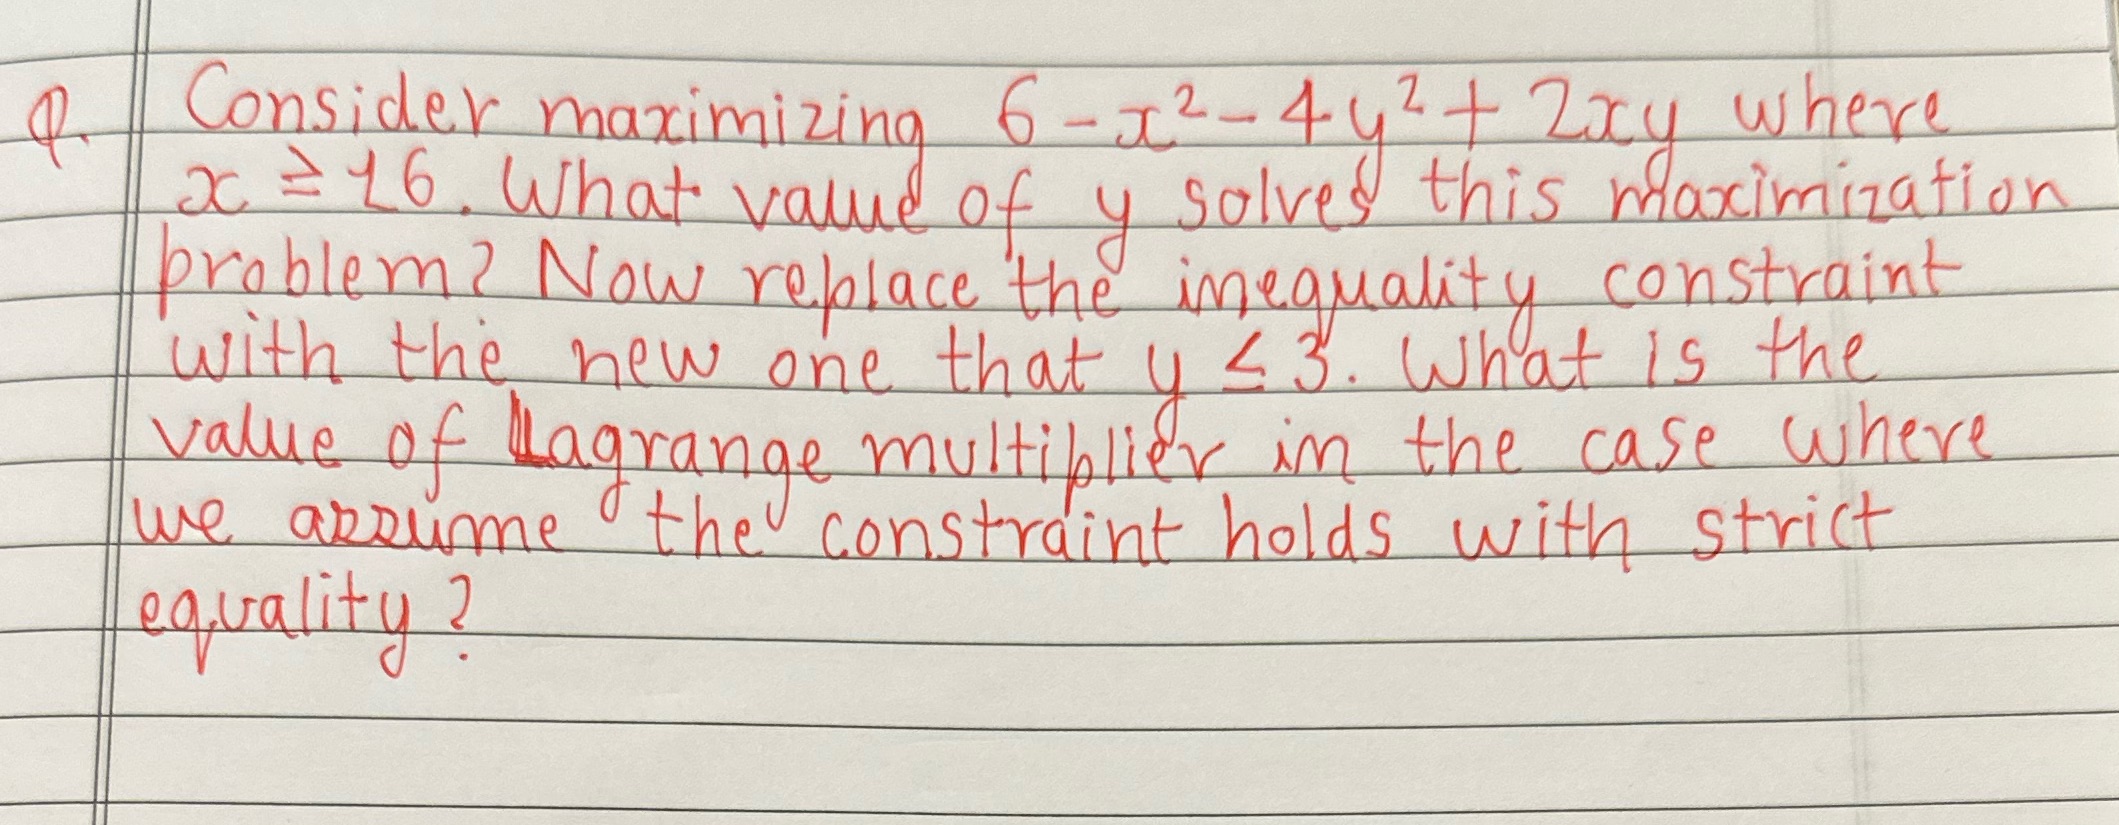 Q. Consider maximizing 6 - x² - 4y² + 2xy where
x ≥ 16. What value of y solves this maximization
problem? Now replace the inequality constraint
with the new one that y ≤ 3. What is the
value of Lagrange multiplier in the case where
we assume the constraint holds with strict
equality?